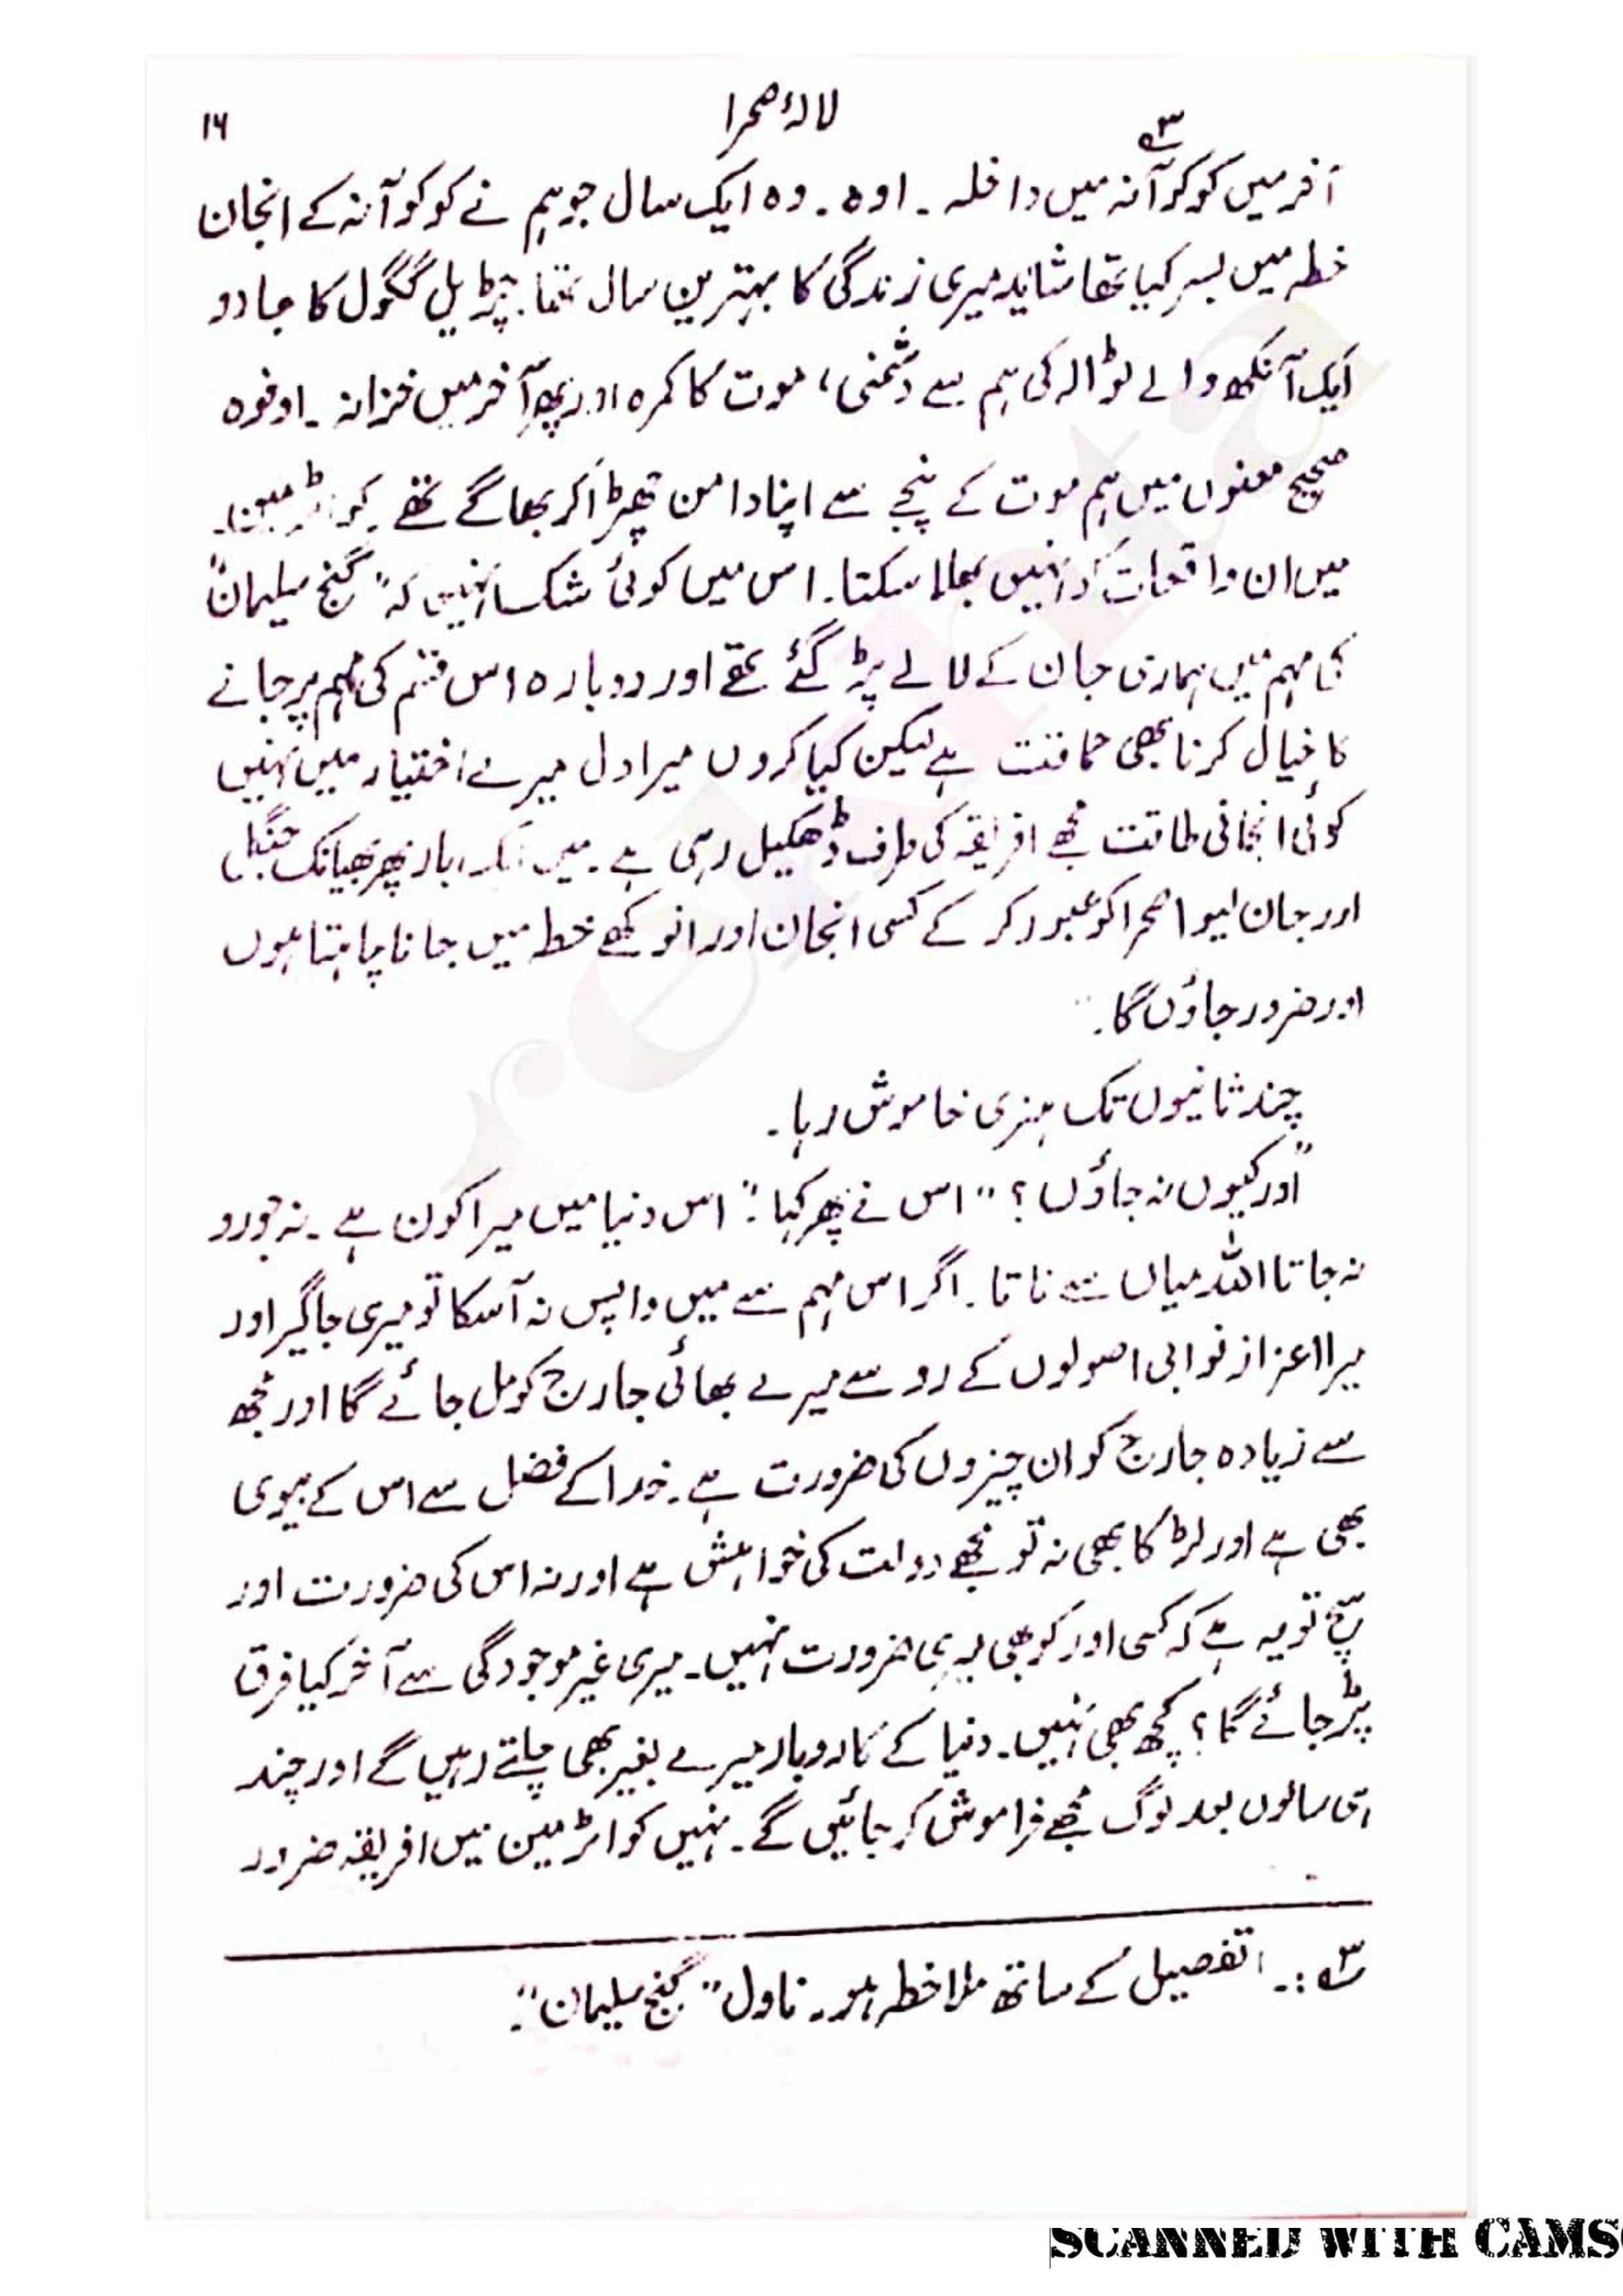 ۱۶ لالۂ صحرا ۳؎
آخر میں کوکوآنہ میں داخلہ ۔ اوہ ۔ وہ ایک سال جو ہم نے کوکوآنہ کے انجان
خطہ میں بسر کیا تھا شاید میری زندگی کا بہترین سال تھا۔ چڑیل گگول کا جادو
ایک آنکھ والے ٹوالہ کی ہم سے دشمنی، موت کا کمرہ اور پھر آخر میں خزانہ ۔ اوفوہ
صحیح معنوں میں ہم موت کے پنجے سے اپنا دامن چھڑا کر بھاگے تھے ۔
میں ان واقعات کو نہیں بھلا سکتا۔ اس میں کوئی شک نہیں کہ "گنج سلیمان"
کی مہم میں ہماری جان کے لالے پڑ گئے تھے اور دوبارہ اس قسم کی مہم پر جانے
کا خیال کرنا بھی حماقت ہے لیکن کیا کروں میرا دل میرے اختیار میں نہیں
کوئی انجانی طاقت مجھے افریقہ کی طرف ڈھکیل رہی ہے ۔ میں ایک بار پھر بھیانک جنگل
اور جان لیوا صحرا کو عبور کر کے کسی انجان اور انوکھے خطہ میں جانا چاہتا ہوں
اور ضرور جاؤں گا۔"
چند ثانیوں تک ہنری خاموش رہا ۔
"اور کیوں نہ جاؤں ؟" اس نے پھر کہا : "اس دنیا میں میرا کون ہے ۔ نہ جورو
نہ جاتا اللہ میاں سے ناتا ۔ اگر اس مہم سے میں واپس نہ آسکا تو میری جاگیر اور
میرا اعزاز نوابی اصولوں کے رو سے میرے بھائی جارج کو مل جائے گا اور مجھ
سے زیادہ جارج کو ان چیزوں کی ضرورت ہے ۔ خدا کے فضل سے اس کے بیوی
بھی ہے اور لڑکا بھی نہ تو مجھے دولت کی خواہش ہے اور نہ اس کی ضرورت اور
سچ تو یہ ہے کہ کسی اور کو بھی میری ضرورت نہیں ۔ میری غیر موجودگی سے آخر کیا فرق
پڑ جائے گا ؟ کچھ بھی نہیں ۔ دنیا کے کاروبار میرے بغیر بھی چلتے رہیں گے اور چند
ہی سالوں بعد لوگ مجھے فراموش کر جائیں گے ۔ نہیں کواٹرمین میں افریقہ ضرور
۳؎ :۔ تفصیل کے ساتھ ملاحظہ ہو ۔ ناول "گنج سلیمان"۔
SCANNED WITH CAMS